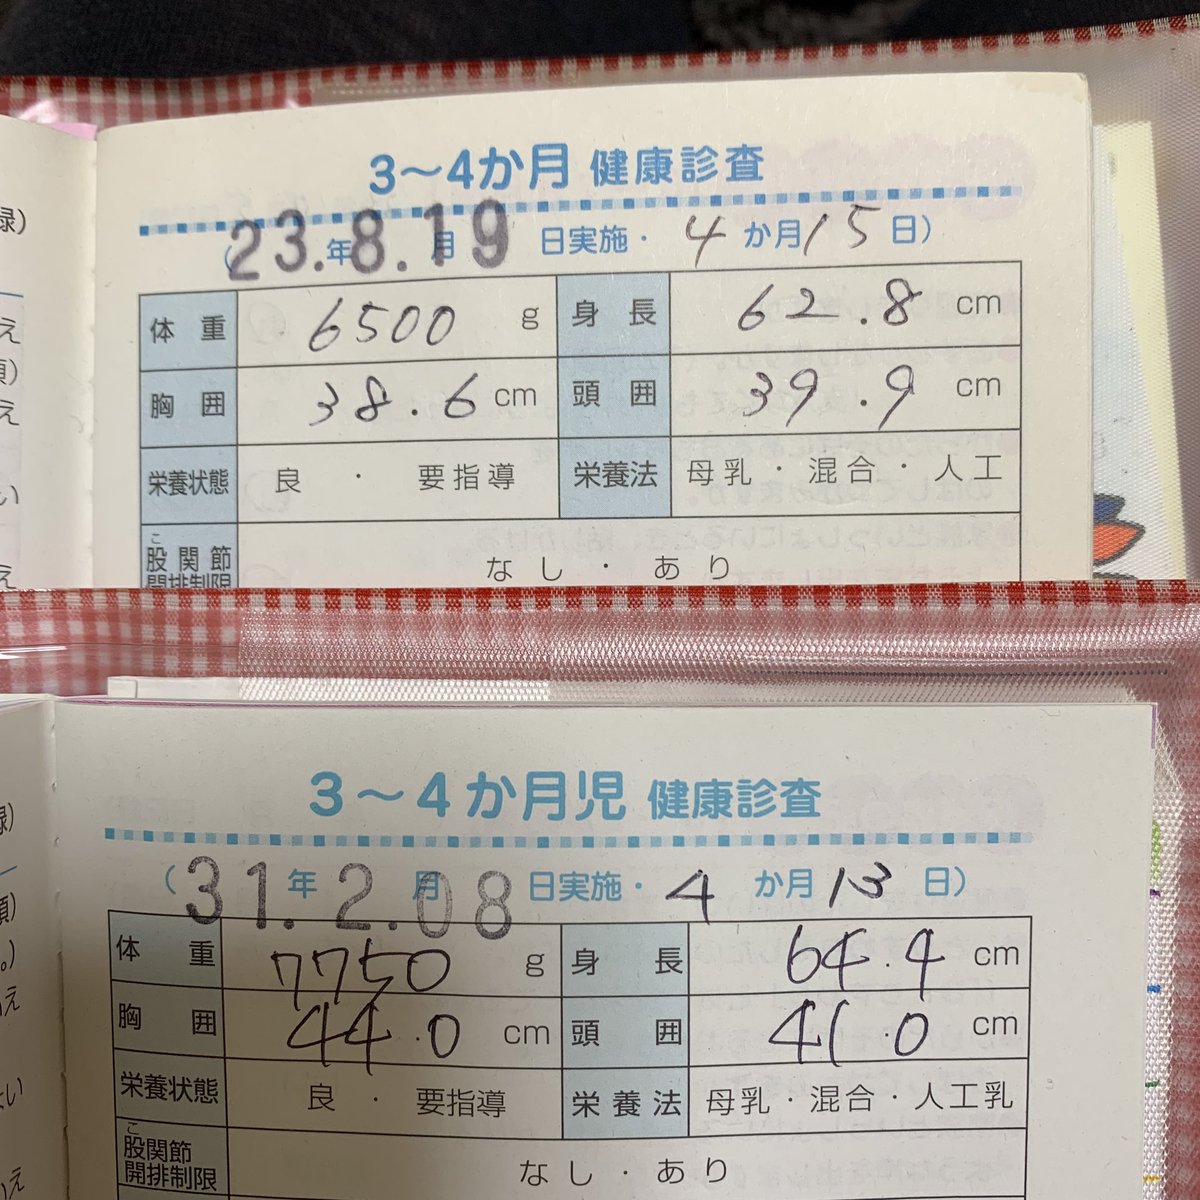 3〜4か月 健康診査
(23.年8.月19日実施・4か月15日)
体重 6500 g 身長 62.8 cm
胸囲 38.6 cm 頭囲 39.9 cm
栄養状態 良・要指導 栄養法 母乳・混合・人工
こ
股関節
開排制限 なし・あり
3〜4か月児 健康診査
(31.年2.月08日実施・4か月13日)
体重 7750 g 身長 64.4 cm
胸囲 44.0 cm 頭囲 41.0 cm
栄養状態 良・要指導 栄養法 母乳・混合・人工乳
こ
股関節
開排制限 なし・あり